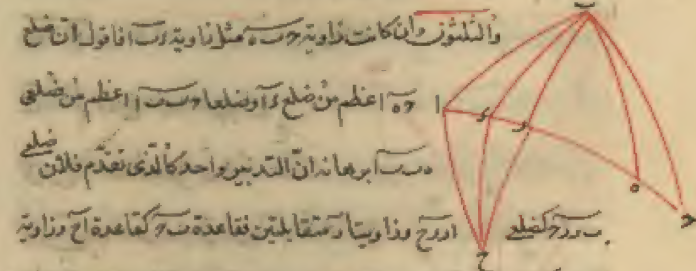 والثلثون وان كانت زاوية حـ ب ه مثل زاوية ر ب ا فاقول ان ضلع
حـ ه اعظم من ضلع ء ا وضلعا حـ ب ب ا اعظم من ضلعى
ه ب ب ا برهانه ان التدبير واحد كالذى تقدم فلان ضلعى
ب ر ر ح كضلعى ا ر ر ح وزاويتا ر متقابلتين فقاعدة ب ح كقاعدة ا ح وزاوية
ب
ا
ء
ر
ه
حـ
ح